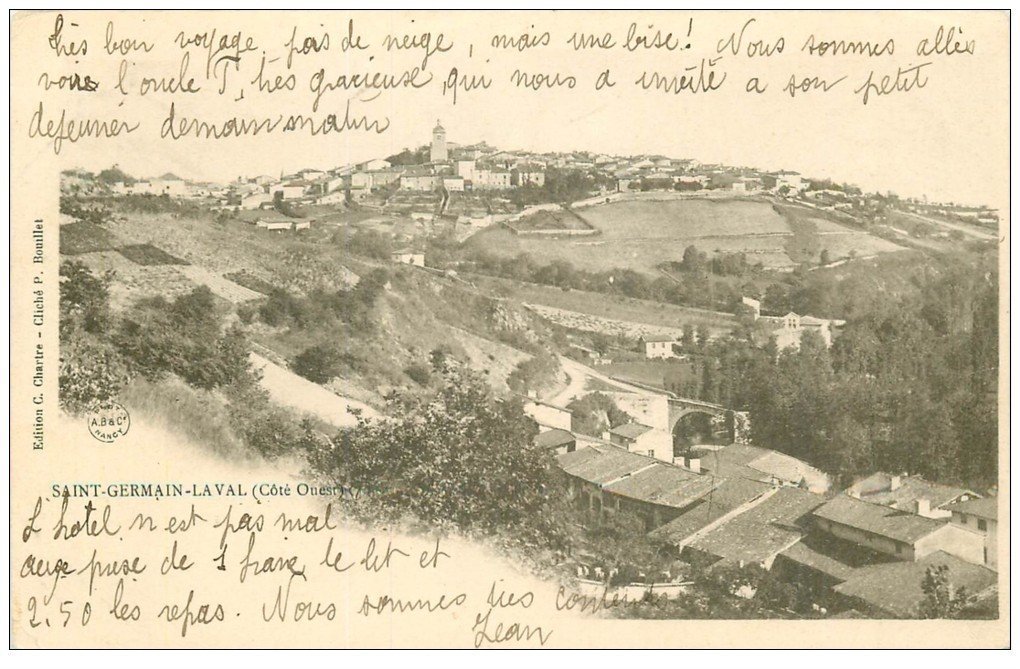 très bon voyage, pas de neige, mais une bise! Nous sommes allés
voir l'oncle T, très gracieuse, qui nous a invité a son petit
dejeuner demain matin
Edition C. Chartre - Cliché P. Bouillet
A.B & Cie
NANCY
SAINT-GERMAIN-LAVAL (Côté Ouest)
L'hotel n'est pas mal
de 1 franc le lit et
2,50 les repas. Nous sommes très contents
Jean